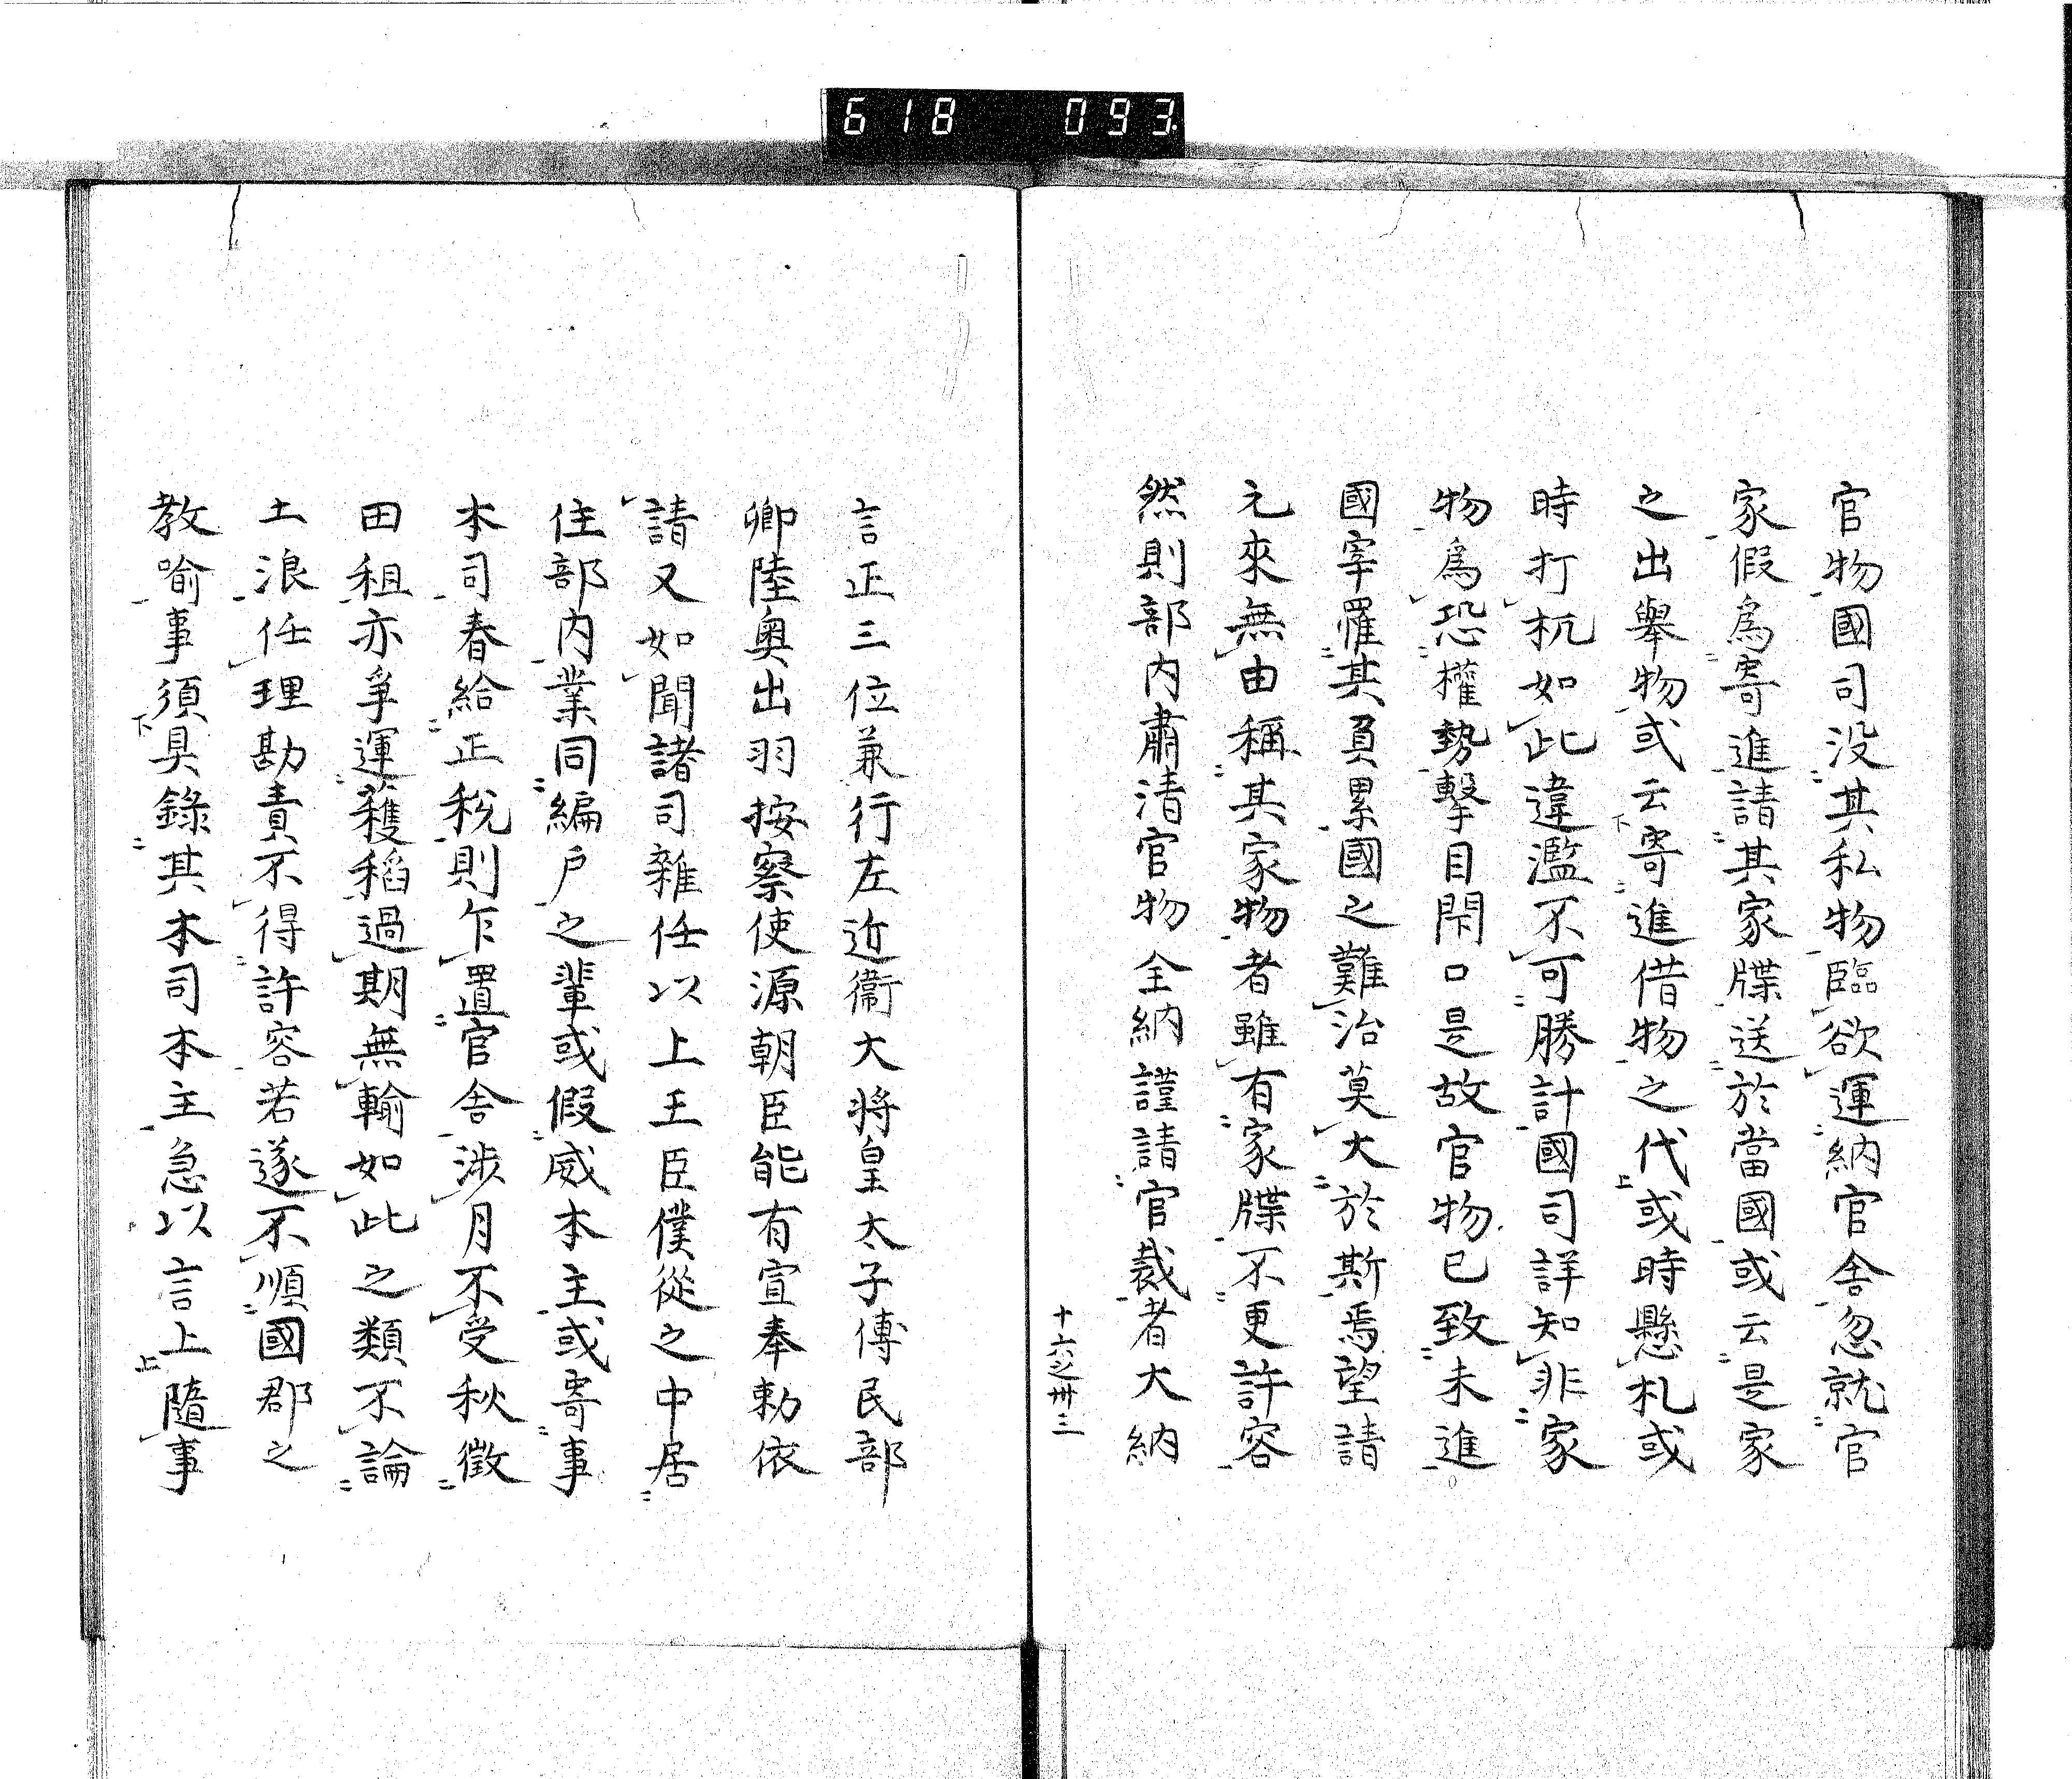 618 093
官物國司没其私物臨欲運納官舎忽就官
家假爲寄進請其家牒送於當國或云是家
之出舉物或云寄進借物之代或時懸札或
時打杭如此違濫不可勝計國司詳知非家
物爲恐權勢擊目閇口是故官物已致未進
國宰罹其負累國之難治莫大於斯焉望請
元來無由稱其家物者雖有家牒不更許容
然則部内肅清官物全納謹請官裁者大納
十六之卅三
言正三位兼行左近衞大將皇太子傅民部
卿陸奥出羽按察使源朝臣能有宣奉勅依
請又如聞諸司雜任以上王臣僕從之中居
住部内業同編戸之輩或假威本主或寄事
本司春給正税則乍置官舎渉月不受秋徴
田租亦爭運穫稻過期無輸如此之類不論
土浪任理勘責不得許容若遂不順國郡之
教喩事須具錄其本司本主急以言上隨事